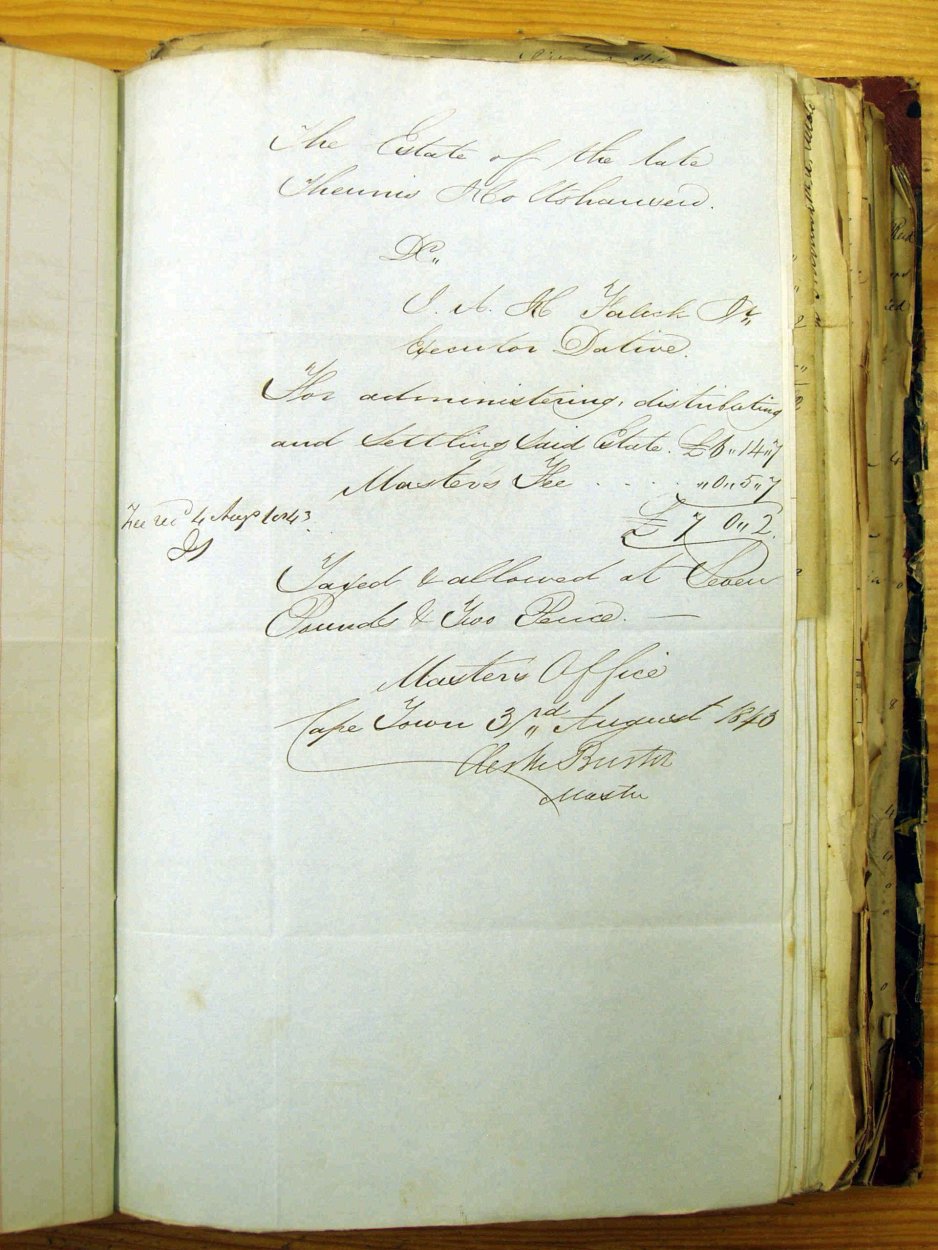 The Estate of the late
Theunis Holtshauzen.
Dr
J. A. H. Falick Jr
Executor Dative.
For administering, distributing
and Settling Said Estate. £6"14"7
Master's Fee . . . . "0"5"7
£7 0"2.
Fee recd 4 Augt 1843.
Taxed & allowed at Seven
Pounds & Two Pence. —
Master's Office
Cape Town 3rd August 1843
Master